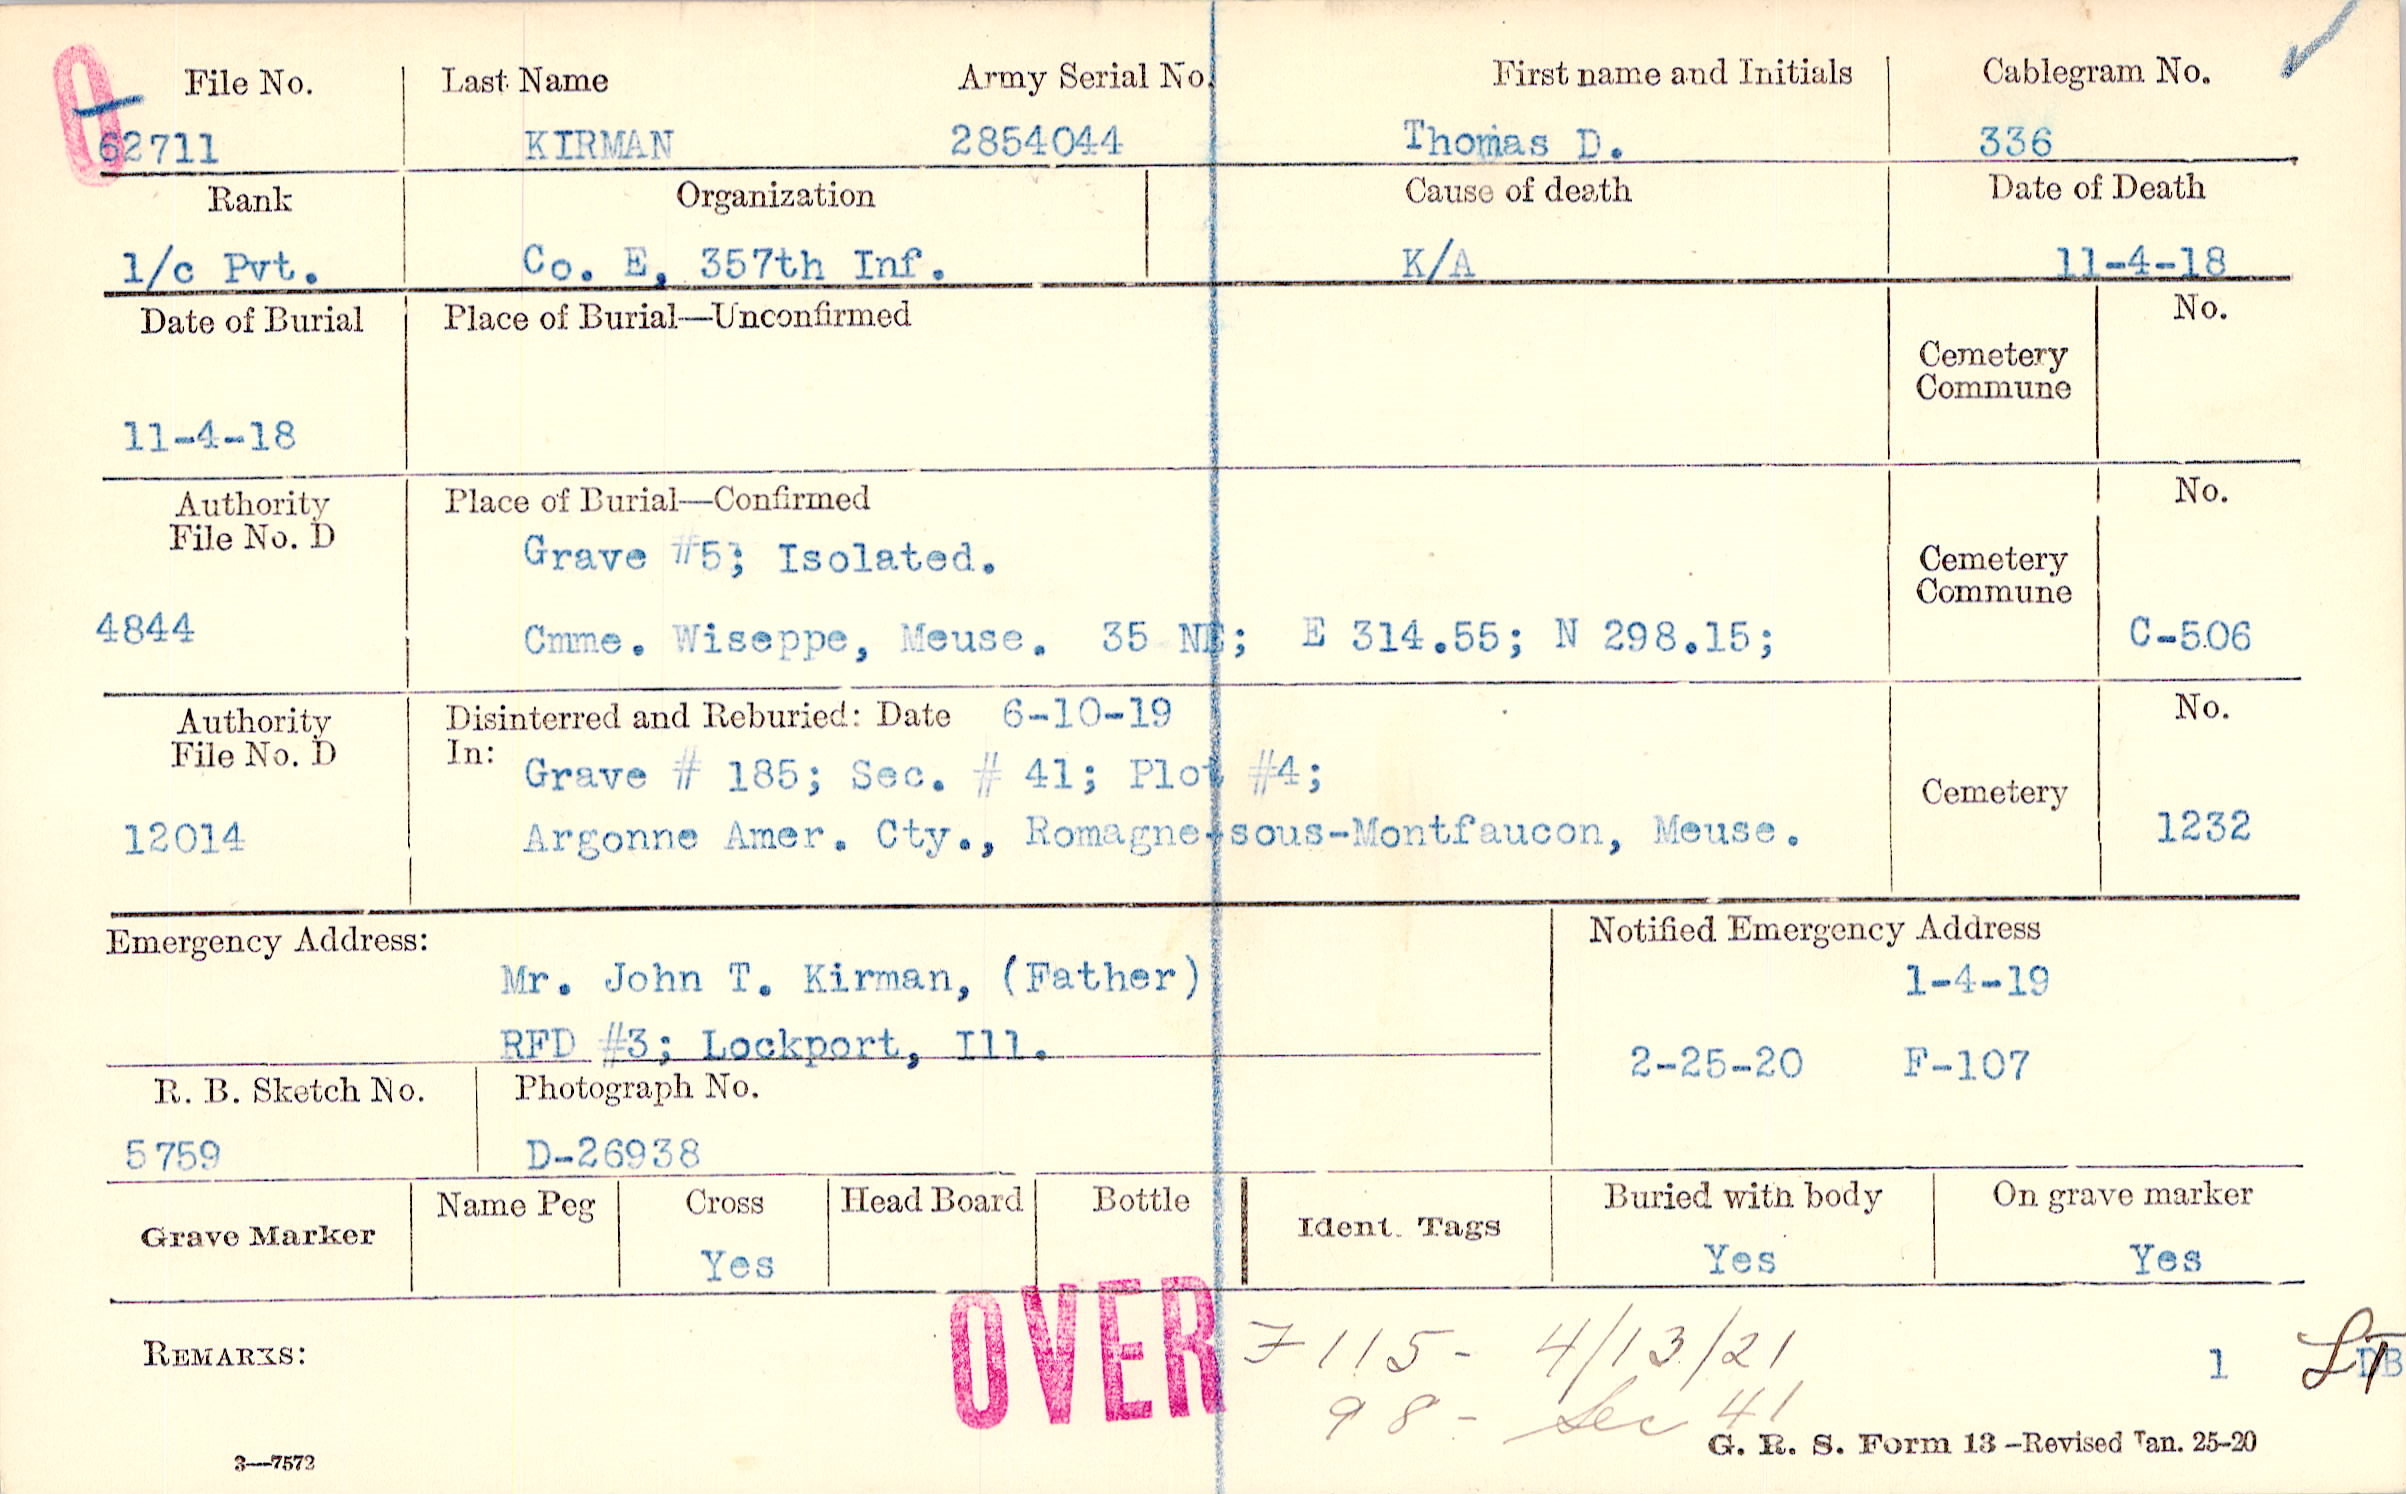 File No. Last Name Army Serial No. First name and Initials Cablegram No.
62711 KIRMAN 2854044 Thomas D. 336
Rank Organization Cause of death Date of Death
1/c Pvt. Co. E, 357th Inf. K/A 11-4-18
Date of Burial Place of Burial—Unconfirmed No.
Cemetery
Commune
11-4-18
Authority Place of Burial—Confirmed No.
File No. D
Grave #5; Isolated.
Cemetery
Commune
4844 Cmme. Wiseppe, Meuse. 35 NE; E 314.55; N 298.15; C-506
Authority Disinterred and Reburied: Date 6-10-19 No.
File No. D In:
Grave # 185; Sec. # 41; Plot #4;
Cemetery
12014 Argonne Amer. Cty., Romagne-sous-Montfaucon, Meuse. 1232
Emergency Address: Notified Emergency Address
Mr. John T. Kirman, (Father) 1-4-19
RFD #3; Lockport, Ill. 2-25-20 F-107
R. B. Sketch No. Photograph No.
5759 D-26938
Grave Marker Name Peg Cross Head Board Bottle Ident. Tags Buried with body On grave marker
Yes Yes Yes
OVER
F 115- 4/13/21
REMARKS: 1 DB
98- Sec 41
3—7572 G. R. S. Form 13—Revised Jan. 25-20